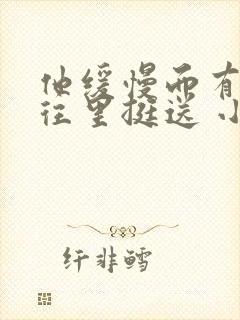 他缓慢而有
往里挺送 小
纤非鳕